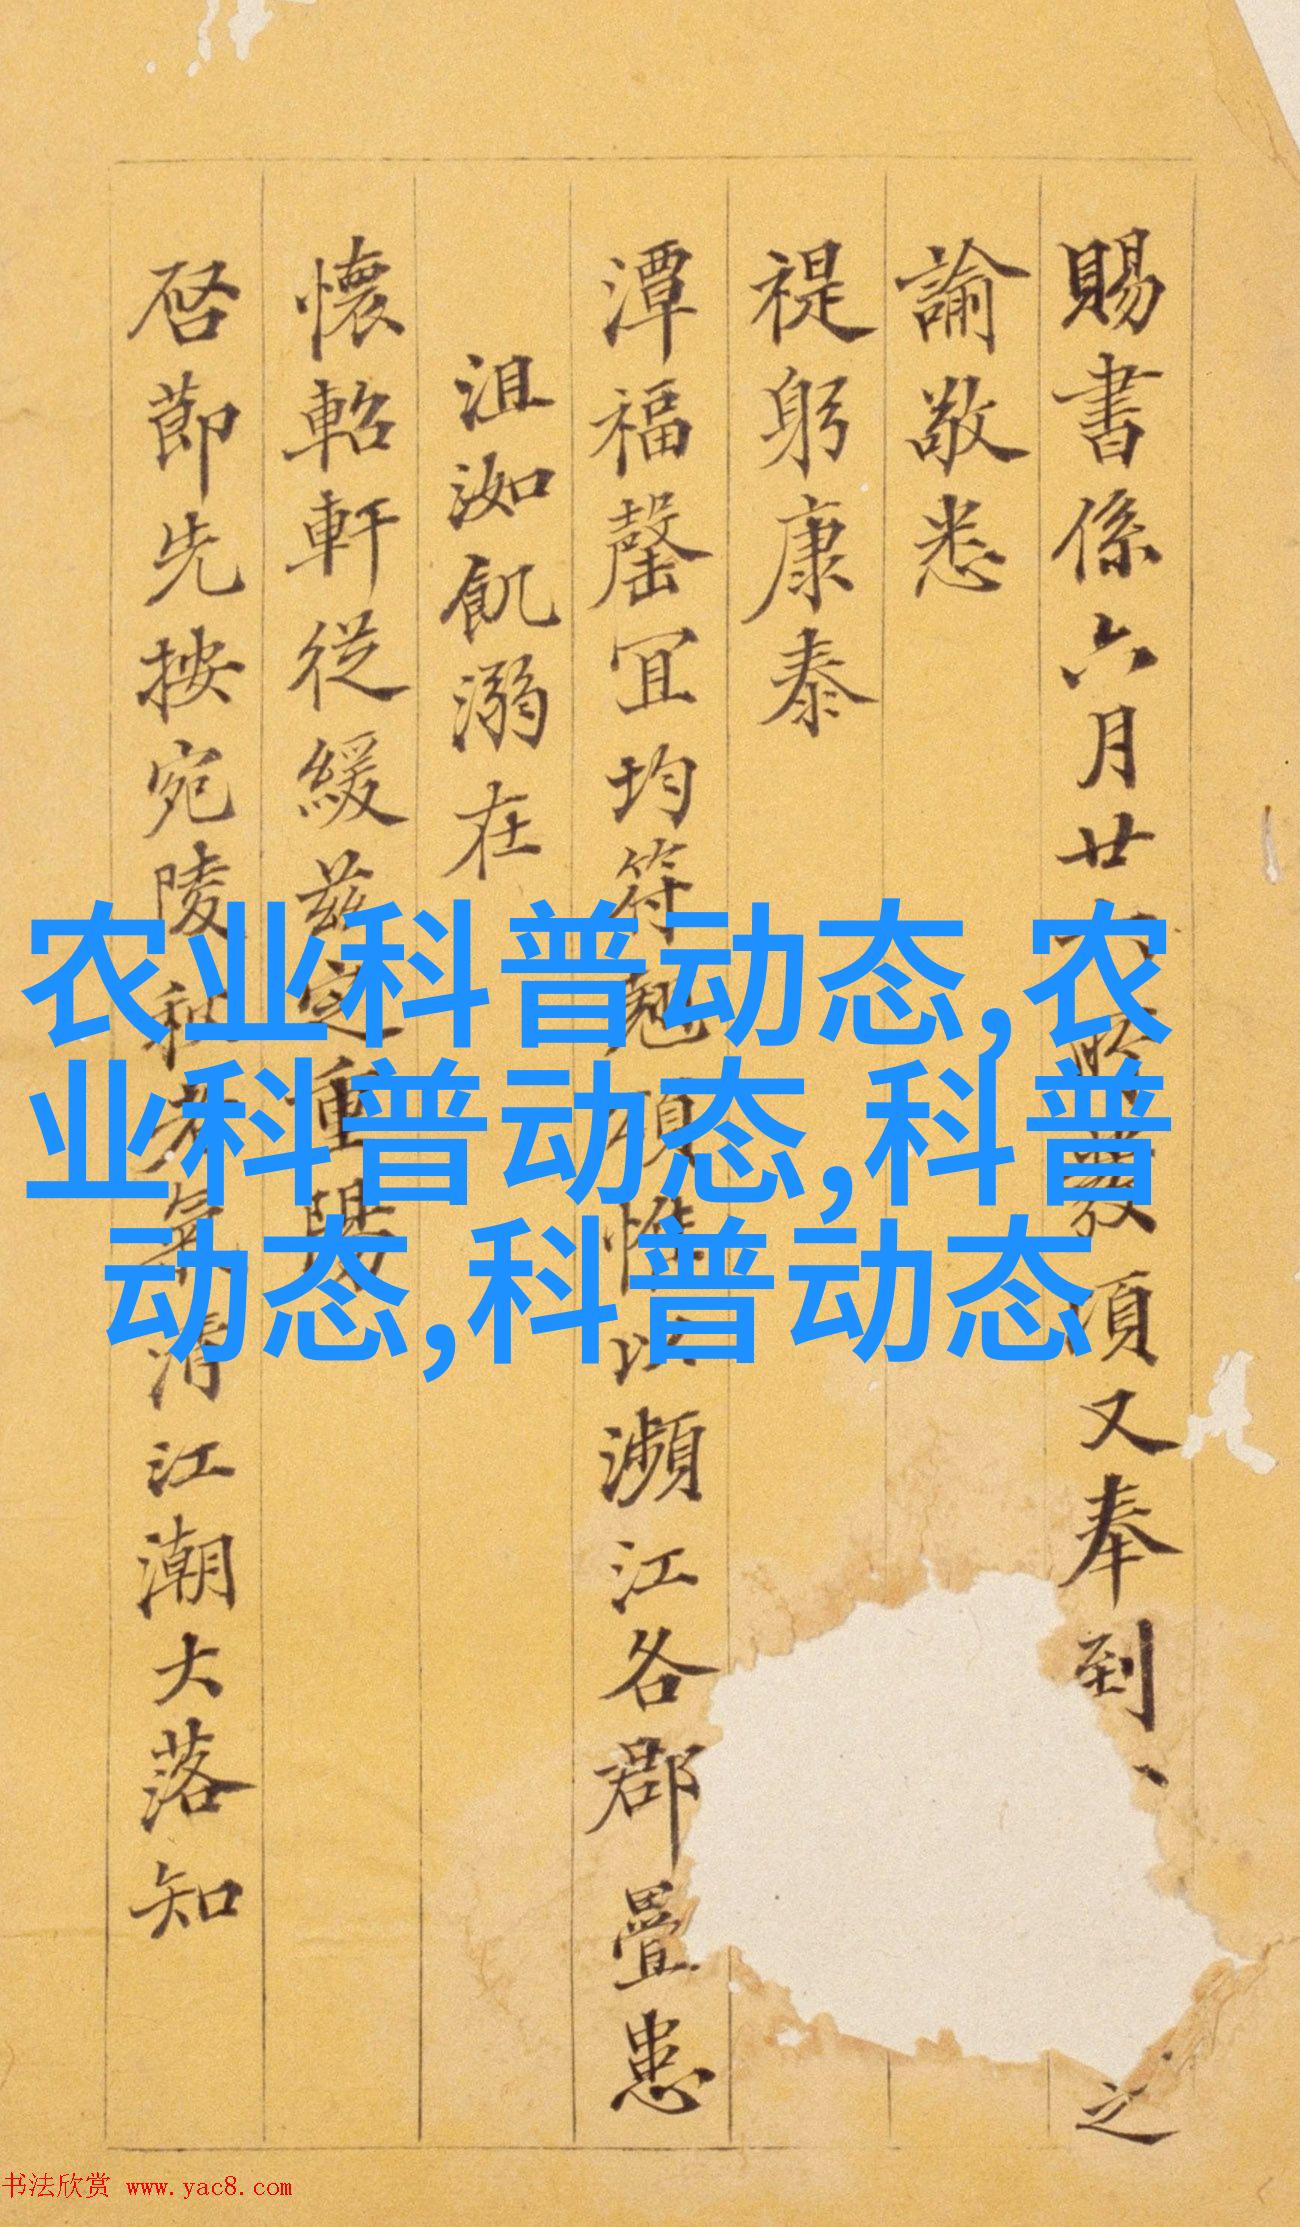 賜書係六月廿 項又奉到 之
諭敬悉
禔躬康泰
潭福罄宜均符 頌惟以瀕江各郡疊患
沮洳飢溺在
懷軺軒從緩茲定重陽
啓節先按宛陵 清江潮大落知
农业科普动态,农
业科普动态,科普
动态,科普动态
书法欣赏 www.yac8.com